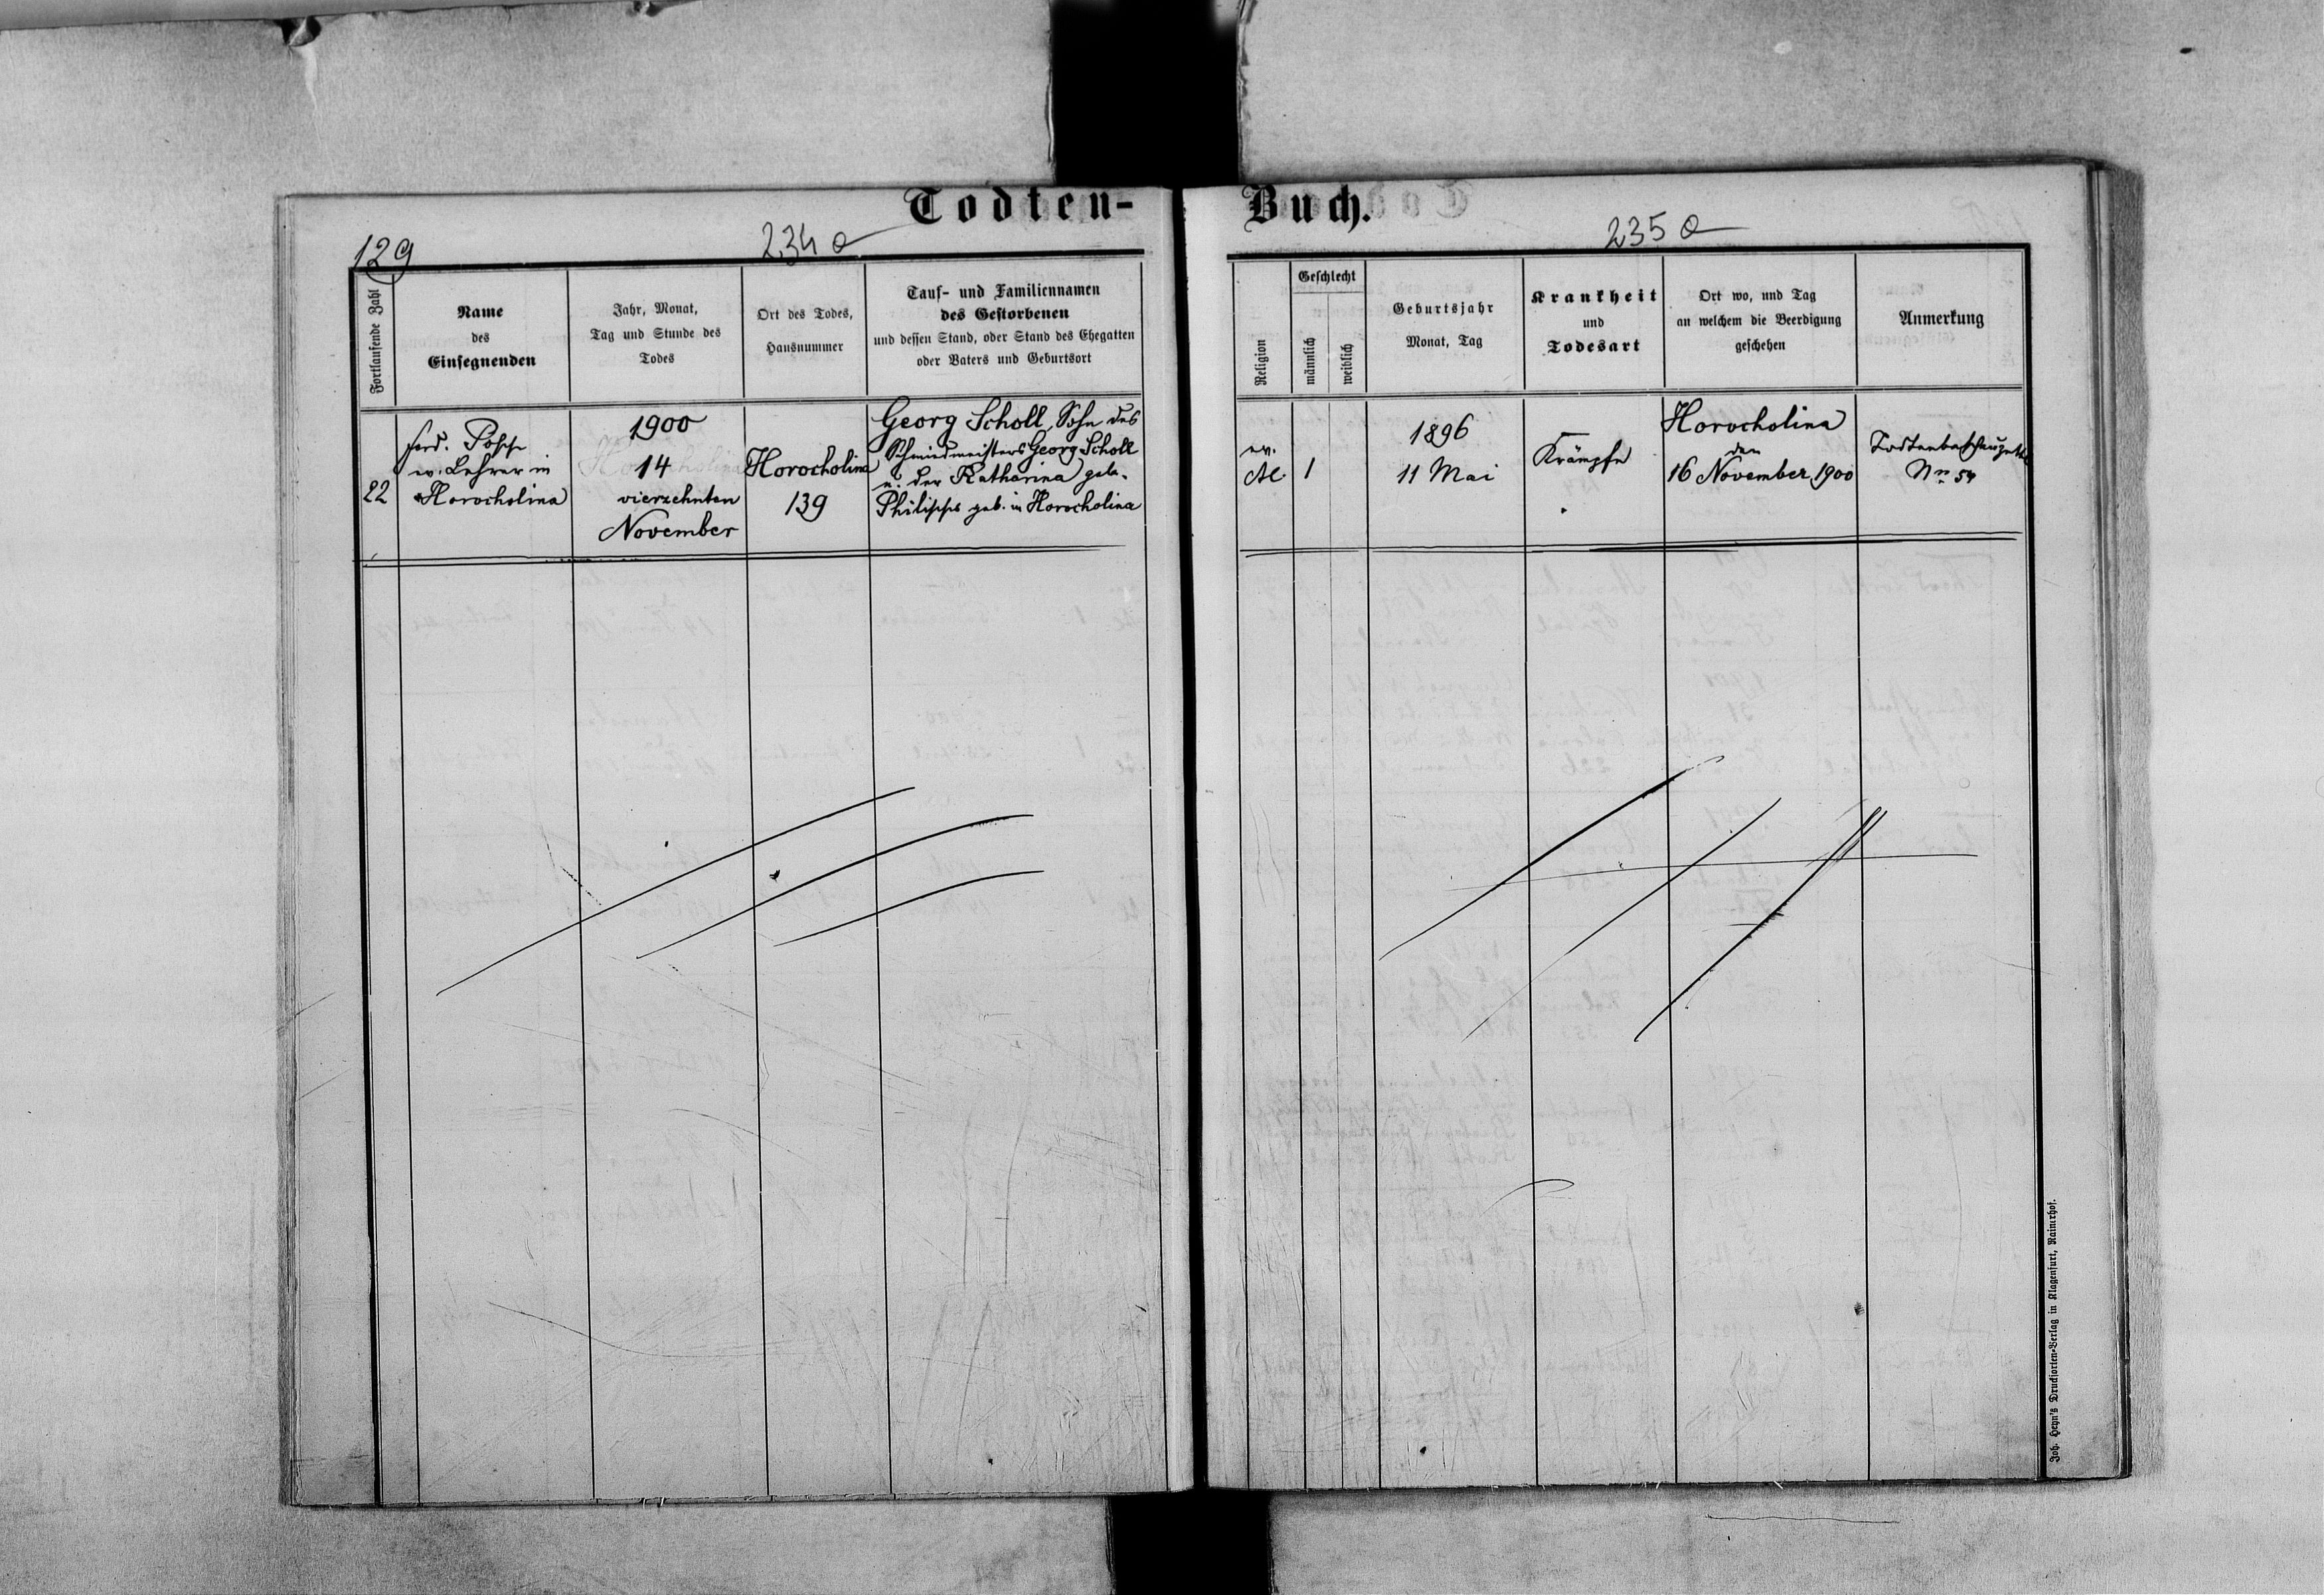 Todten-
Buch.
129
234 a
235 a
Fortlaufende Zahl
Name
des
Einsegnenden
Jahr, Monat,
Tag und Stunde des
Todes
Ort des Todes,
Hausnummer
Tauf- und Familiennamen
des Gestorbenen
und dessen Stand, oder Stand des Ehegatten
oder Vaters und Geburtsort
Religion
Geschlecht
männlich
weiblich
Geburtsjahr
Monat, Tag
Krankheit
und
Todesart
Ort wo, und Tag
an welchem die Beerdigung
geschehen
Anmerkung
22
ferd.
ev. Lehrer in
Horocholina
1900
14
vierzehnten
November
Horocholina
139
Georg Scholl, Sohn des
Schmiedmeisters Georg Scholl
u. der Katharina geb.
Philipps geb. in Horocholina
ev.
AC.
1
1896
11 Mai
Krämpfe
Horocholina
den
16 November 1900
Todtenbeschauzettel
No 54
Joh. Heyn's Drucksorten-Verlag in Klagenfurt, Rainerhof.